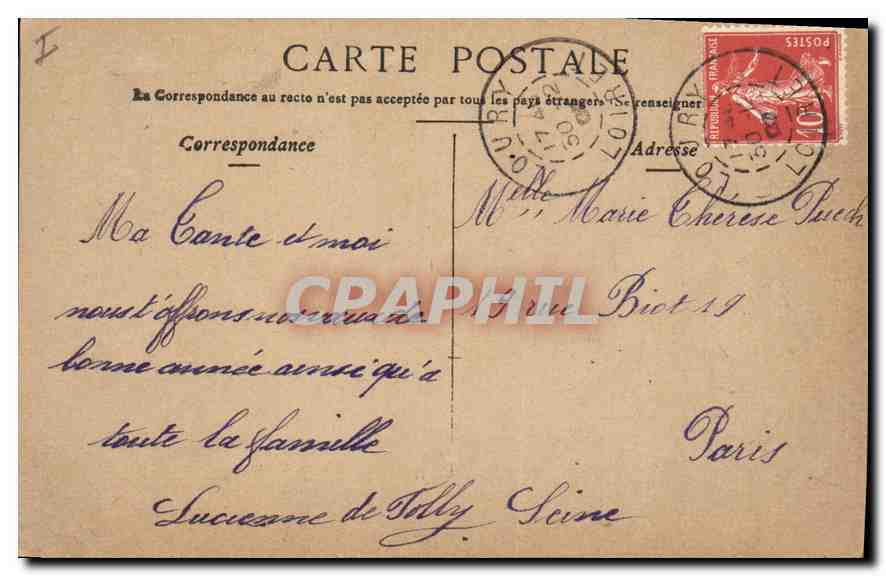 I
CARTE POSTALE
La Correspondance au recto n'est pas acceptée par tous les pays étrangers. Se renseigner
Correspondance
Adresse
Ma Tante et moi
nous t'offrons nos vœux de
bonne année ainsi qu'à
toute la famille
Lucienne de Tolly Seine
Melle Marie Thérèse Puech
19 rue Biot 19
Paris
CPAPHIL
LOURY
LOIRET
17
30
LOURY
LOIRET
30
REPUBLIQUE FRANÇAISE
POSTES
10